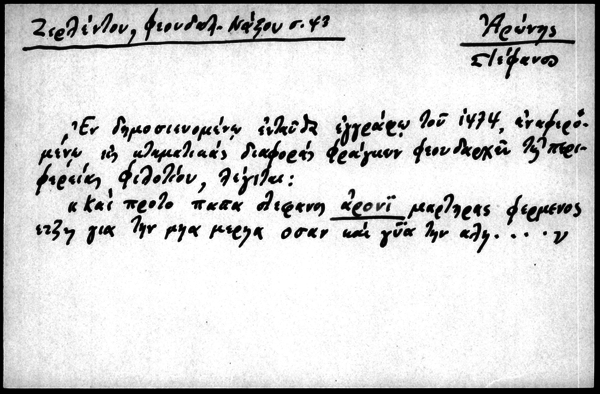 Ζερλέντου, φεουδαλ. Νάξου σ. 43
Ἀρώνης
Στέφανος
Ἐν δημοσιευομένῳ ἐνταῦθα ἐγγράφῳ τοῦ 1474, ἀναφερο-
μένῳ εἰς κτηματικάς διαφοράς φράγκων φεουδαρχῶν τῆς περι-
φερείας Φιλοτίου, λέγεται:
"Και προτο παπα στεφανη ἀρονϊ μαρτηρας φερμενος
ετζη για την μηα μερηα οσαν και γϋα την αλη....."